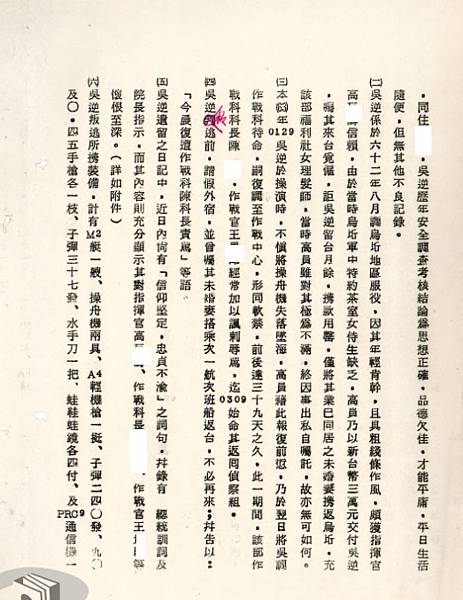 ，同住　　，吳逆歷年安全調查考核結論爲思想正確，品德欠佳，才能平庸，平日生活
隨便，但無其他不良記錄。
㈡吳逆係於六十二年八月調烏坵地區服役，因其年輕肯幹，且具粗綫條作風，頗獲指揮官
高　　倚賴，由於當時烏坵軍中特約茶室女侍生缺乏，高員乃以新台幣三萬元交付吳逆
，囑其來台覓僱，詎吳逆留台月餘，携款用罄，僅將其業已同居之未婚妻携返烏坵，充
該部福利社女理髮師，當時高員雖對其極爲不滿，終因事出私自囑託，故亦無可如何。
㈢本(63)年0129吳逆於操演時，不慎將操舟機失落墜海，高員藉此報復前愆，乃於翌日將吳調
作戰科待命，嗣復調至作戰中心，形同軟禁，前後達三十九天之久，此一期間，該部作
戰科科長陳　　，作戰官王　　等經常加以諷刺辱罵，迄0309始命其返囘偵察組。
㈣吳逆叛逃前，請假外宿，並曾囑其未婚妻搭乘次一航次班船返台，不必再來；幷告以：
「今晨復遭作戰科陳科長責罵」等語。
㈤吳逆遺留之日記中，近日內尙有「信仰堅定，忠貞不渝」之詞句，幷錄有　總統訓詞及
院長指示，而其內容則充分顯示其對指揮官高　　、作戰科長　　、作戰官王　　等
懷恨至深。（詳如附件）
㈥吳逆叛逃所携裝備，計有M2艇一艘、操舟機兩具、A4輕機槍一挺、子彈二四〇發、九〇
及〇·四五手槍各一枝、子彈三十七發、水手刀一把、蛙鞋蛙鏡各四付、及PRC9通信機一